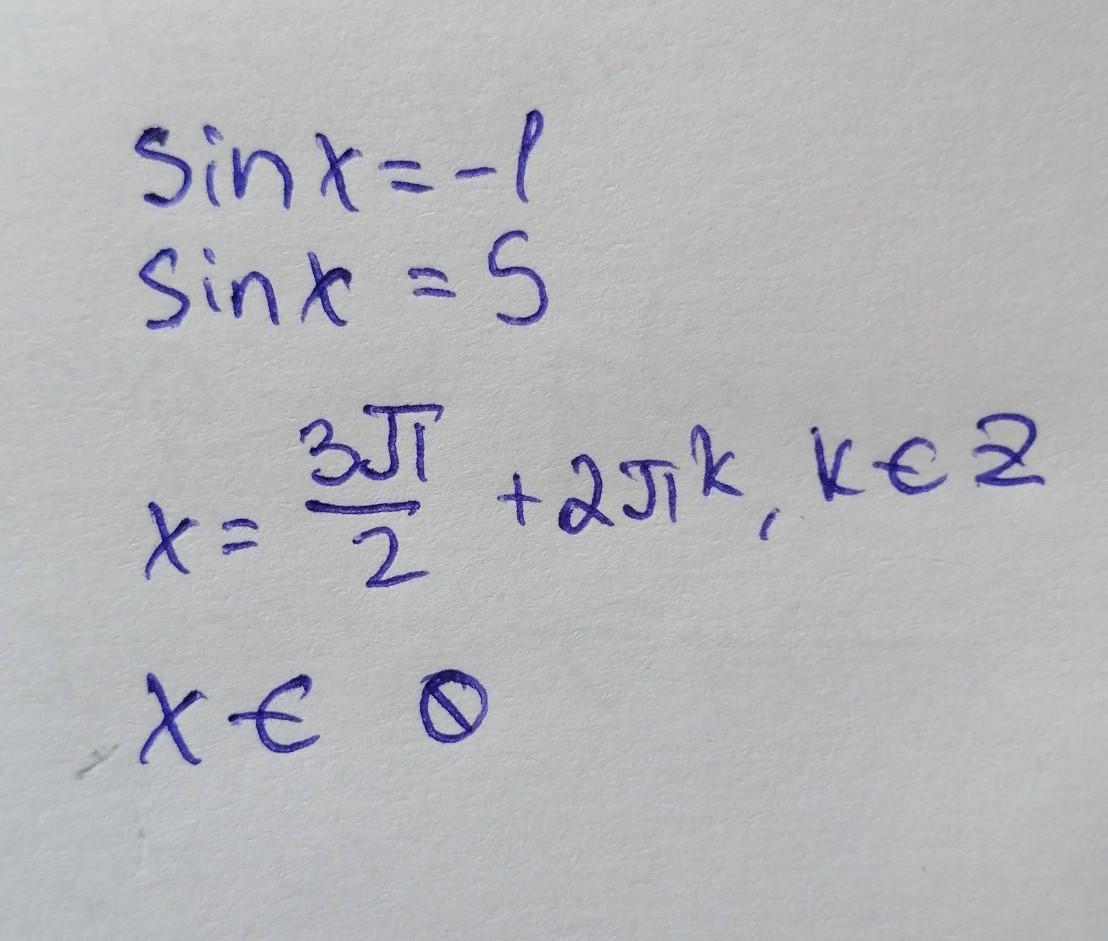 sin x = -1
sin x = 5
x = 3π/2 + 2πk, k ∈ Z
x ∈ ∅